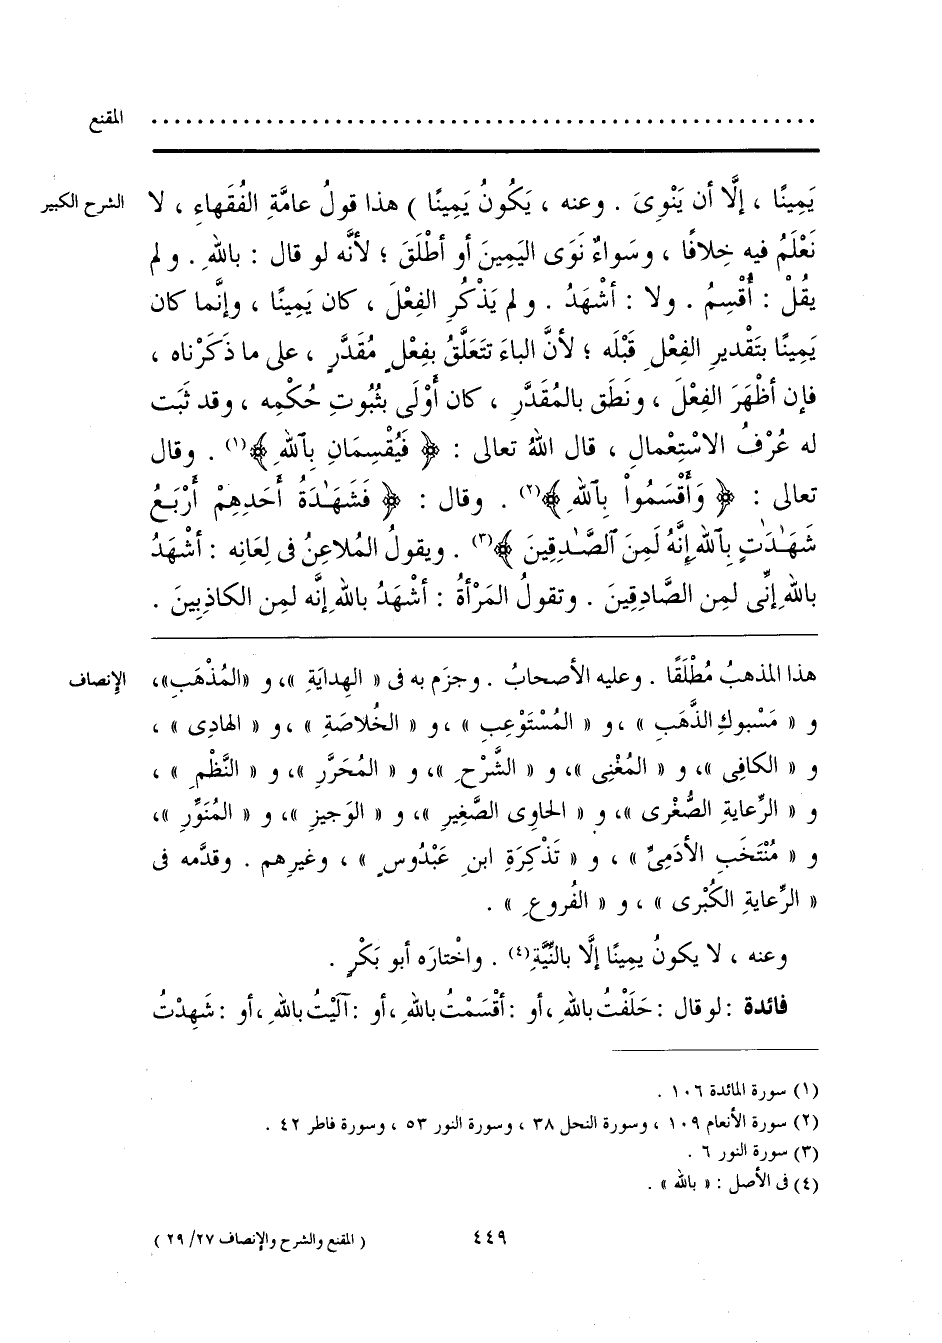 المقنع ......................................................
الشرح الكبير يَمِينًا ، إلَّا أن يَنْوِىَ . وعنه ، يَكُونُ يَمِينًا ) هذا قولُ عامَّةِ الفُقَهاءِ ، لا
نَعْلَمُ فيه خِلافًا ، وسَواءٌ نَوَى اليَمِينَ أو أطْلَقَ ؛ لأنَّه لو قال : باللهِ . ولم
يقُلْ : أُقْسِمُ . ولا : أشْهَدُ . ولم يَذْكُرِ الفِعْلَ ، كان يَمِينًا ، وإنَّما كان
يَمِينًا بتَقْديرِ الفِعْلِ قَبْلَه ؛ لأنَّ الباءَ تتَعَلَّقُ بفِعْلٍ مُقَدَّرٍ ، على ما ذَكَرْناه ،
فإن أظْهَرَ الفِعْلَ ، ونَطَق بالمُقَدَّرِ ، كان أَوْلَى بثُبُوتِ حُكْمِه ، وقد ثَبَت
له عُرْفُ الاسْتِعْمالِ ، قال اللهُ تعالى : ﴿ فَيُقْسِمَانِ بِٱللهِ ﴾(١) . وقال
تعالى : ﴿ وَأَقْسَمُواْ بِٱللهِ ﴾(٢) . وقال : ﴿ فَشَهَـٰدَةُ أَحَدِهِمْ أَرْبَعُ
شَهَـٰدَٰتٍ بِٱللهِ إِنَّهُ لَمِنَ ٱلصَّـٰدِقِينَ ﴾(٣) . ويقولُ المُلاعِنُ فى لِعَانِه : أشْهَدُ
باللهِ إنِّى لمِن الصَّادِقِينَ . وتقولُ المَرْأةُ : أشْهَدُ باللهِ إنَّه لمِن الكاذِبِينَ .
الإنصاف هذا المذهبُ مُطْلَقًا . وعليه الأصحابُ . وجزَم به فى « الهِدايَةِ »، و «المُذْهَبِ»،
و « مَسْبوكِ الذَّهَبِ » ، و « المُسْتَوْعِبِ » ، و « الخُلاصَةِ » ، و « الهادِى » ،
و « الكافِى »، و « المُغْنِى »، و « الشَّرْحِ »، و « المُحَرَّرِ »، و « النَّظْمِ » ،
و « الرِّعايةِ الصُّغْرى »، و « الحاوِى الصَّغِيرِ »، و « الوَجيزِ »، و « المُنَوِّرِ »،
و « مُنْتَخَبِ الأدَمِىِّ » ، و « تَذْكِرَةِ ابنِ عَبْدُوسٍ » ، وغيرِهم . وقدَّمه فى
« الرِّعايةِ الكُبْرى » ، و « الفُروعِ » .
وعنه ، لا يكونُ يمِينًا إلَّا بالنِّيَّةِ(٤) . واخْتارَه أبو بَكْرٍ .
فائدة : لو قال : حَلَفْتُ باللهِ ، أو : أقْسَمْتُ باللهِ ، أو : آلَيْتُ باللهِ ، أو : شَهِدْتُ
(١) سورة المائدة ١٠٦ .
(٢) سورة الأنعام ١٠٩ ، وسورة النحل ٣٨ ، وسورة النور ٥٣ ، وسورة فاطر ٤٢ .
(٣) سورة النور ٦ .
(٤) فى الأصل : « بالله » .
٤٤٩ ( المقنع والشرح والإنصاف ٢٧/ ٢٩ )